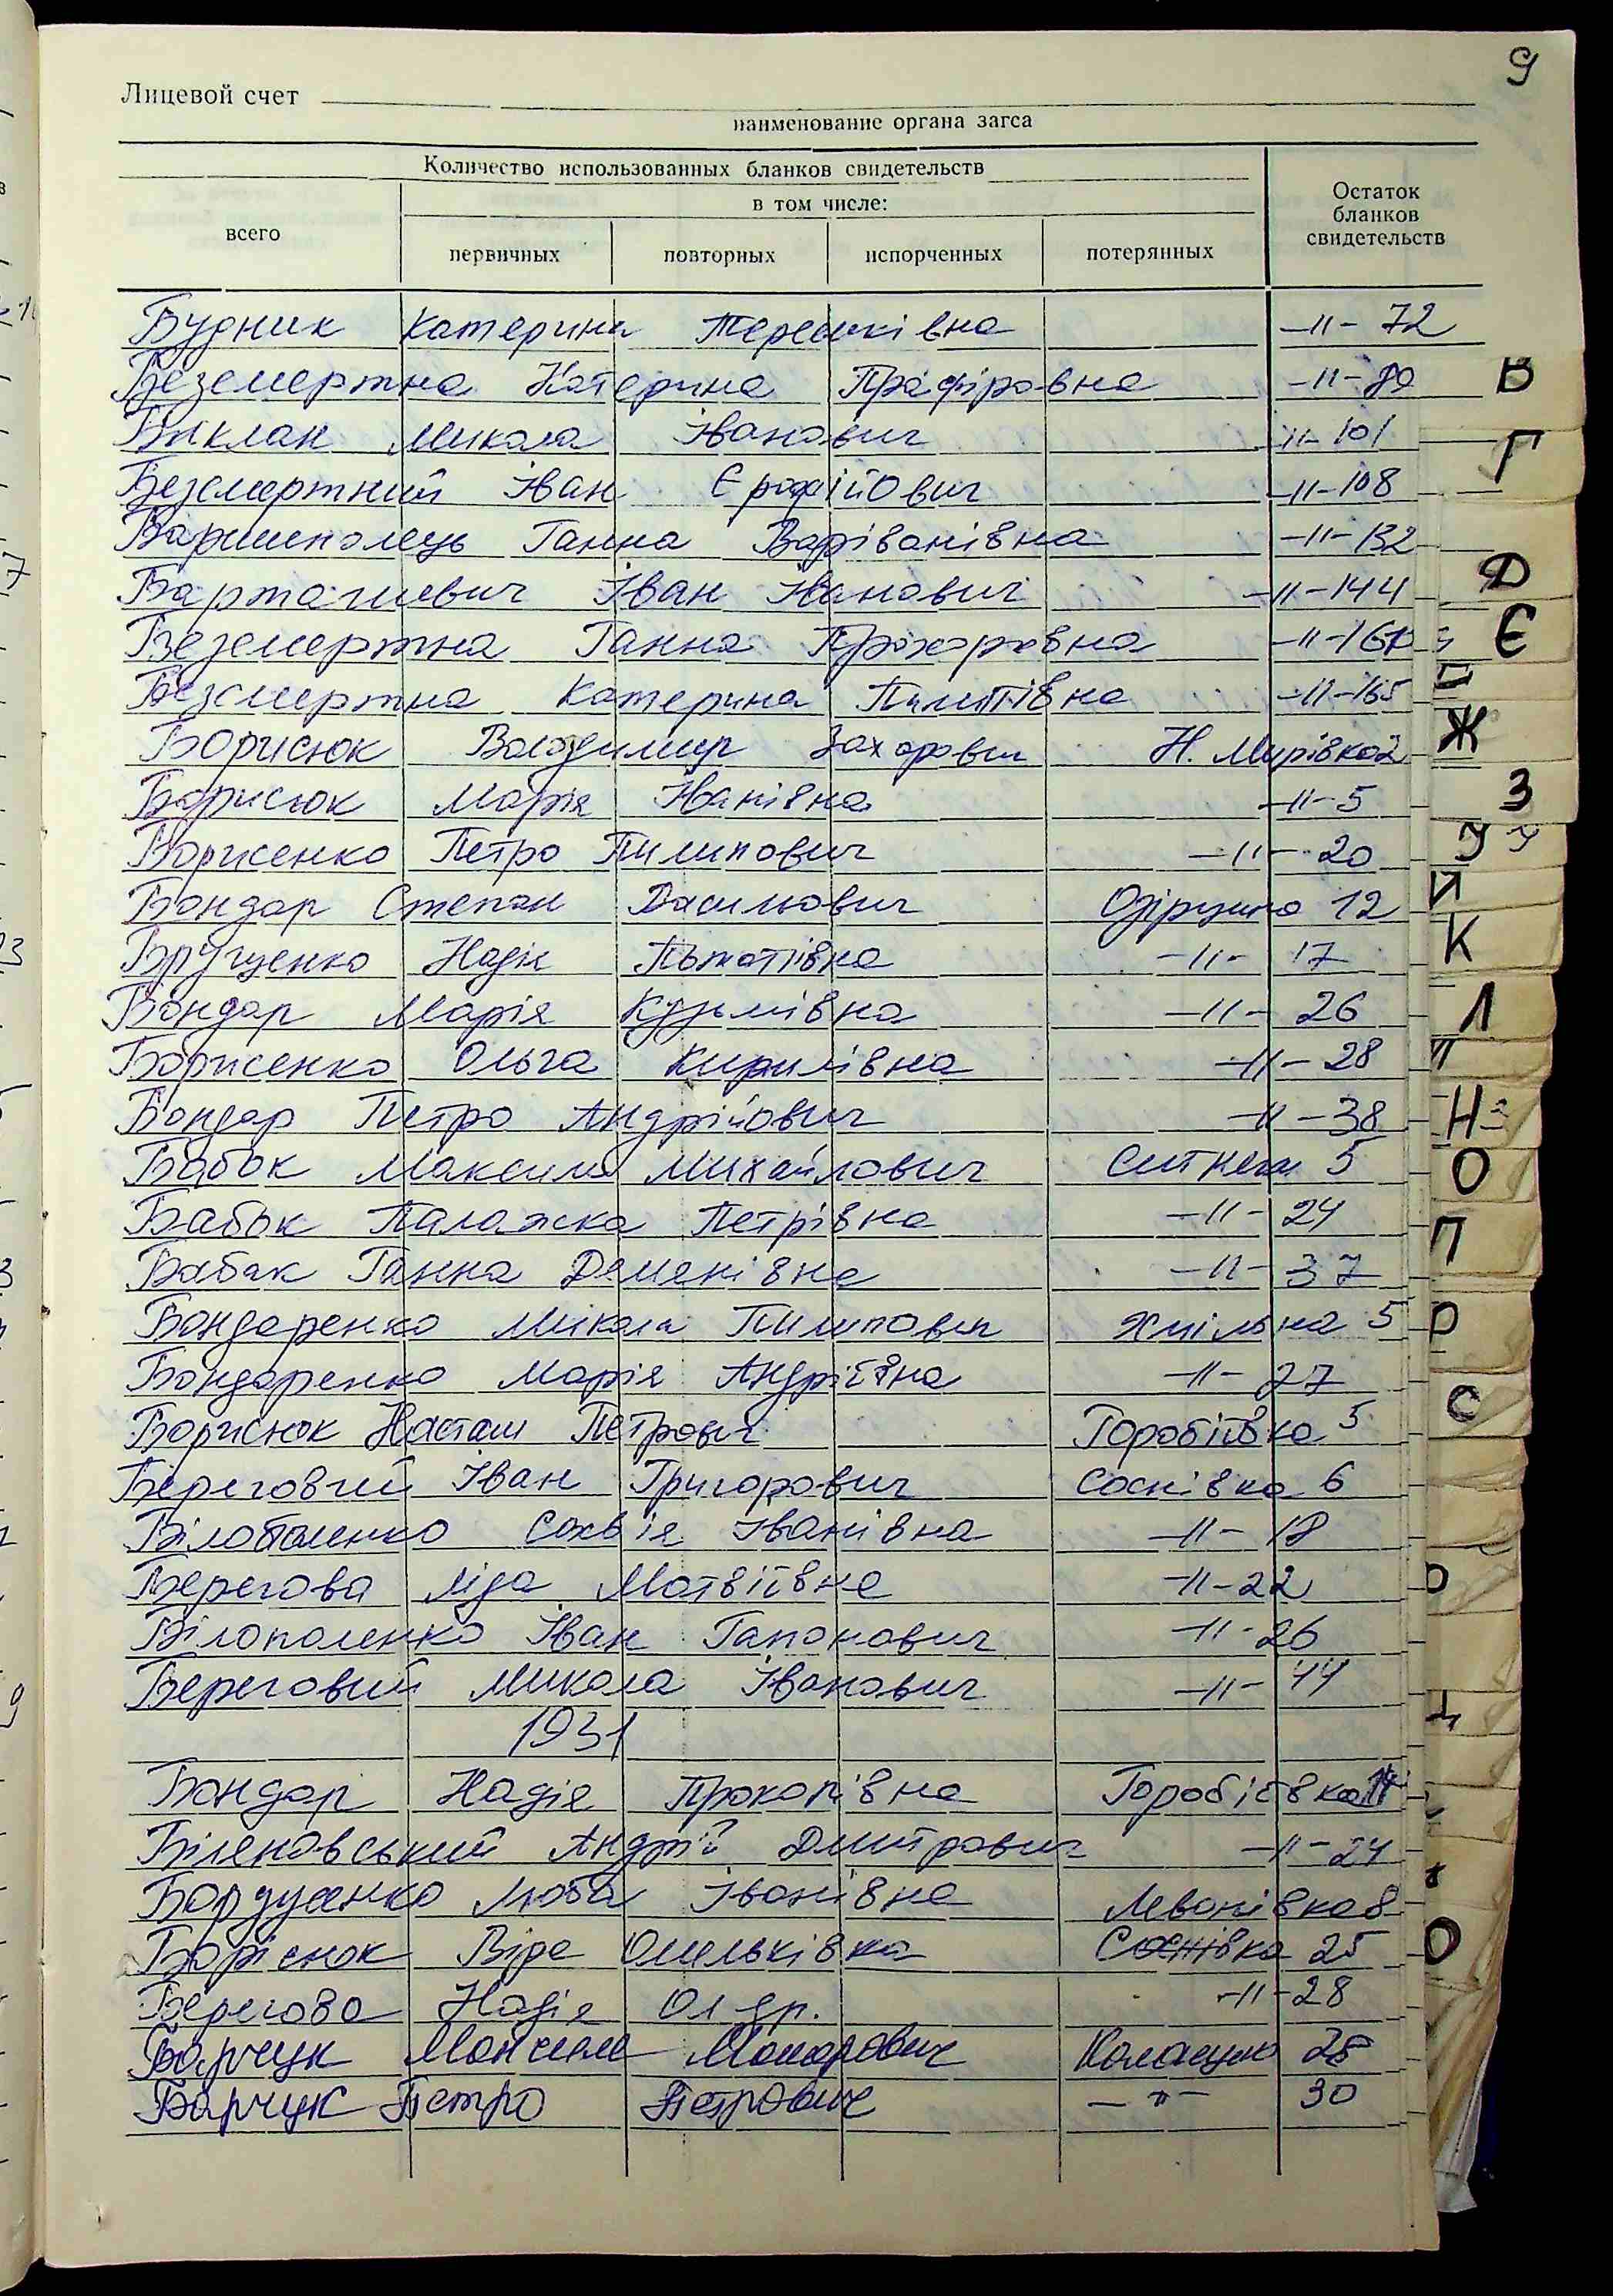 9
Лицевой счет
наименование органа загса
Количество использованных бланков свидетельств
в том числе:
всего
первичных
повторных
испорченных
потерянных
Остаток бланков свидетельств
Будник Катерина Терешківна -11- 72
Безсмертна Катерина -11- 80
Биклан Микола Іванович -11- 101
Безсмертний Іван -11- 108
Ганна -11- 132
Барташевич Іван Іванович -11- 144
Безсмертна Ганна Прохорівна -11-
Безсмертна Катерина Пилипівна -11- 165
Борисюк Володимир Захарович Н. Мирівка 2
Борисюк Марія Іванівна -11- 5
Борисенко Петро Пилипович -11- 20
Бондар Степан Васильович 12
Надія -11- 17
Бондар Марія Кузьмівна -11- 26
Борисенко Ольга Кирилівна -11- 28
Бондар Петро Андрійович -11- 38
Бабак Максим Михайлович Ситняки 5
Бабак Палажка Петрівна -11- 24
Бабак Ганна -11- 37
Бондаренко Микола Пилипович Хмільна 5
Бондаренко Марія Андріївна -11- 27
Борисюк Петрович Горобіївка 5
Береговий Іван Григорович Соснівка 6
Іванівна -11- 18
Берегова Ліда Мотвіївна -11- 22
Білополенко Іван Гапонович -11- 26
Береговий Микола Іванович -11- 44
1931
Бондар Надія Прокопівна Горобіївка
Андрій Дмитрович -11- 24
Люба Іванівна Леонівка 8
Борісюк Віра Омельківна Соснівка 25
Берегова Надія -11- 28
Барчук Максим Макарович 28
Барчук Петро Петрович -"- 30
В
Г
Д
Є
Ж
З
У
И
К
Л
Н
О
П
Р
С